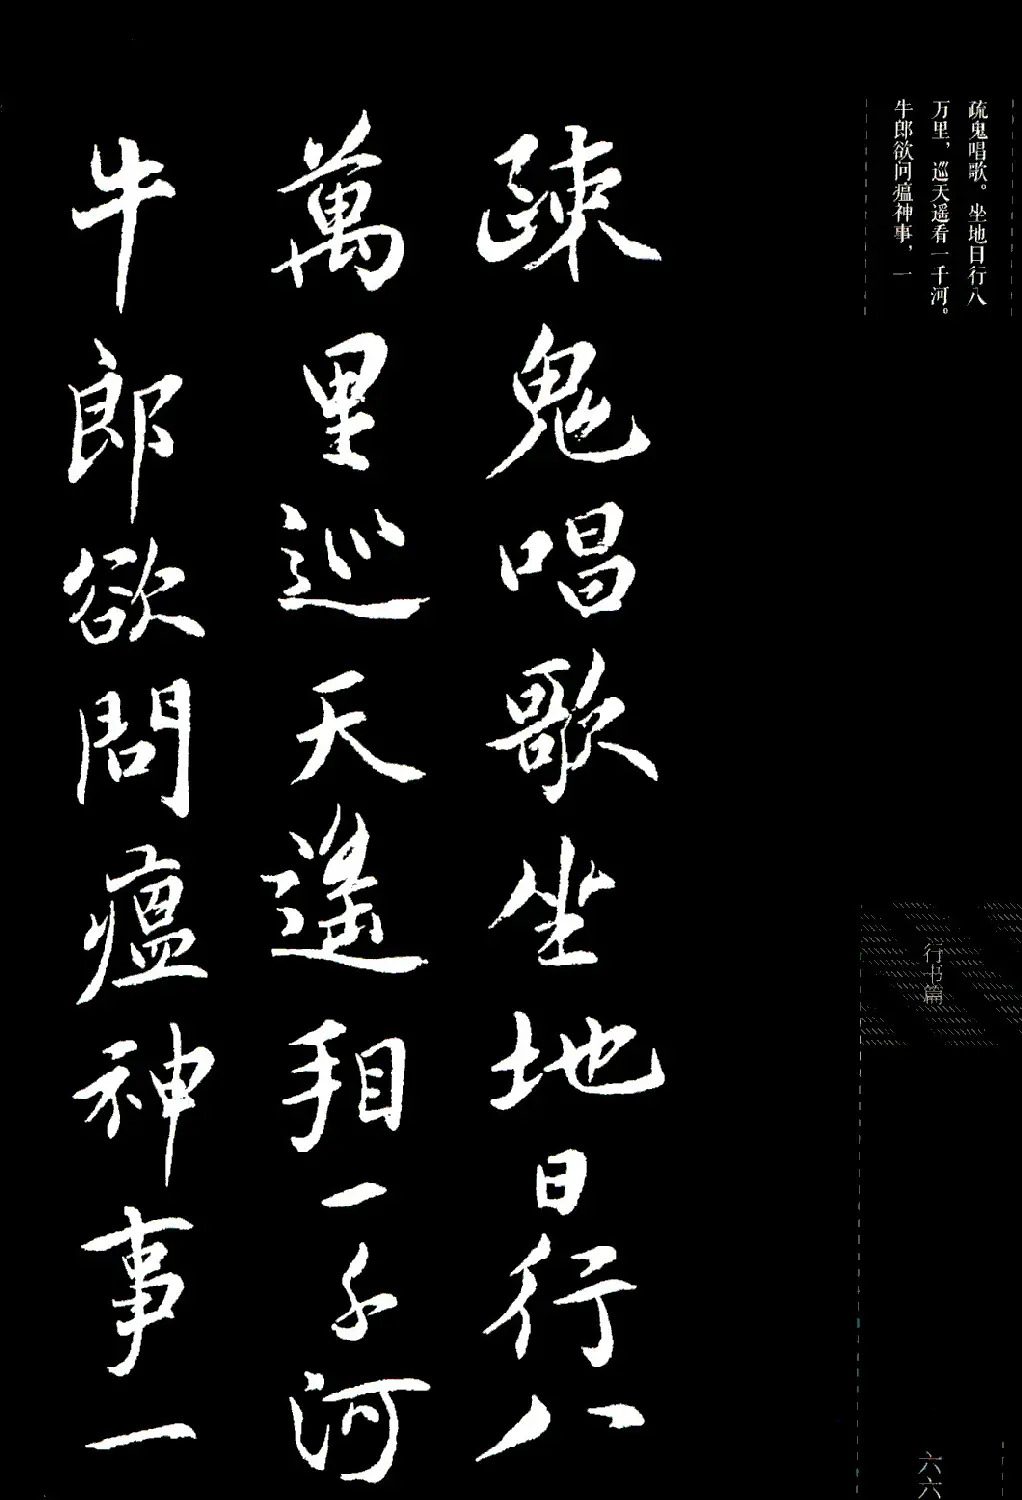 疏鬼唱歌。坐地日行八
万里，巡天遥看一千河。
牛郎欲问瘟神事，一
踈鬼唱歌坐地日行八
萬里巡天遙看一千河
牛郎欲問瘟神事一
行书篇
六六